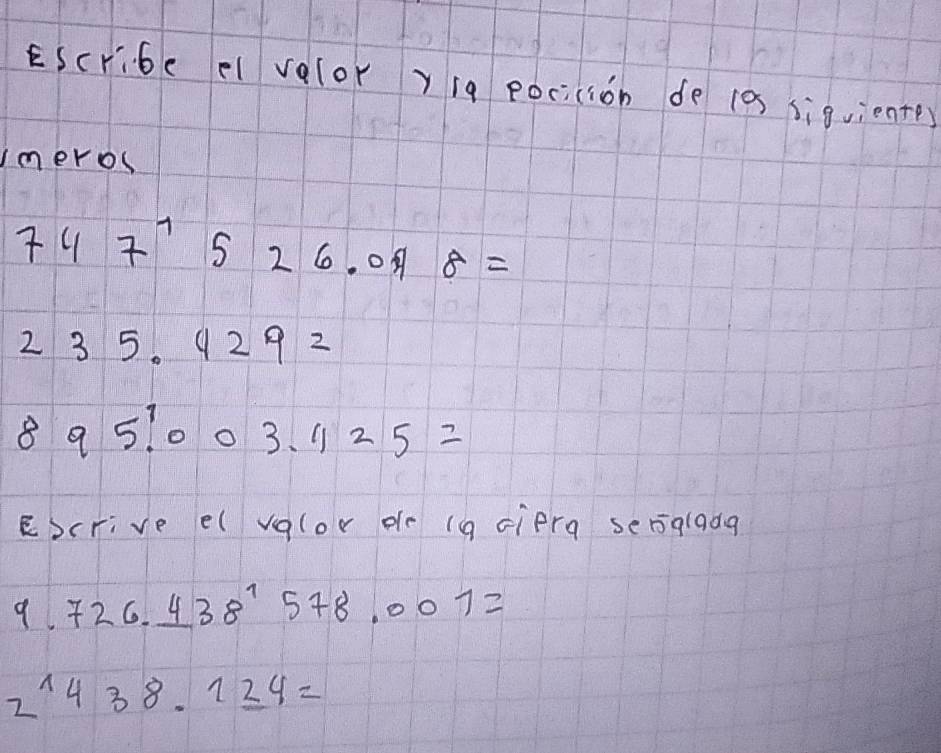 Escribe el valor y la pocición de los siguientes
meros
747¹ 526.098=
235.429=
895¹.003.425=
Escrive el valor de la cifra señalada
9.726.438¹ 578.001=
2¹438.124=